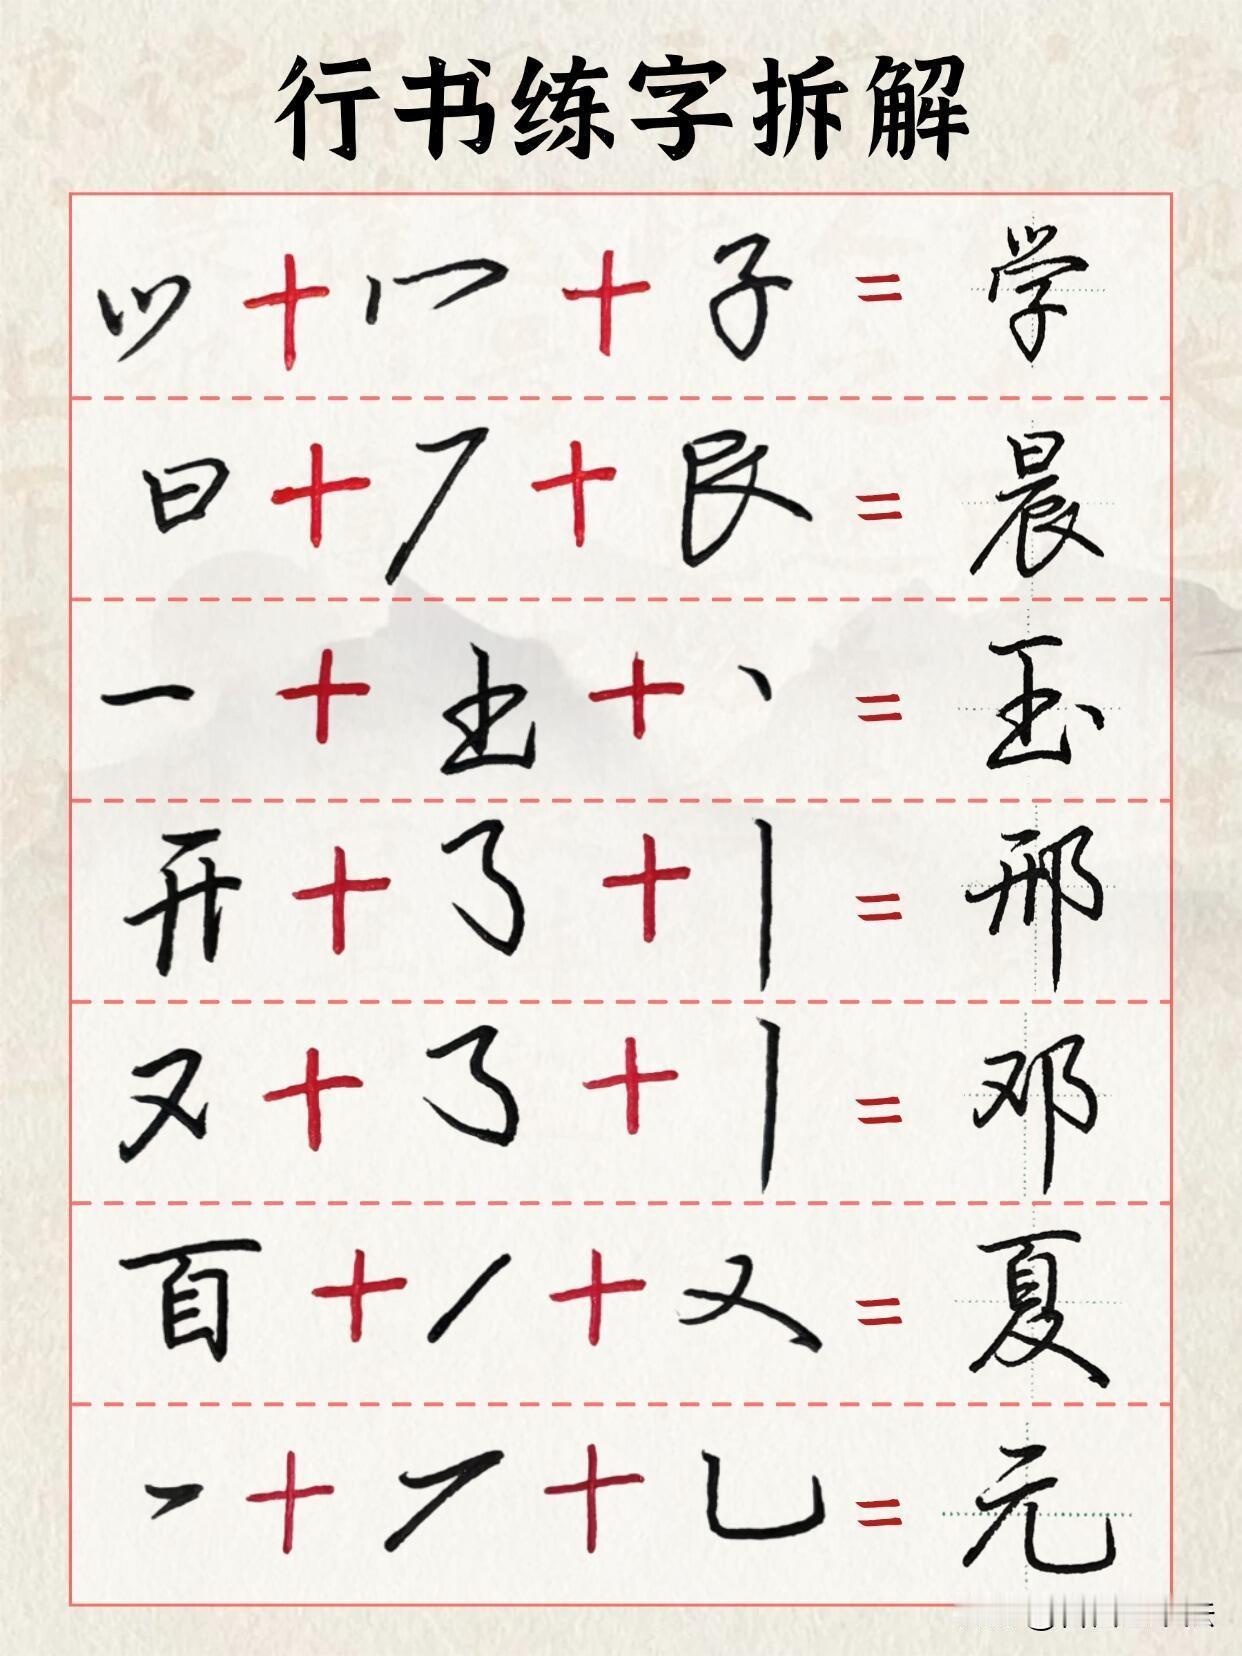 行书练字拆解
⺍+冖+子=学
日+𠂆+艮=晨
一+土+丶=玉
开+了+丨=邢
又+了+丨=邓
百+丿+又=夏
一+丆+乚=元